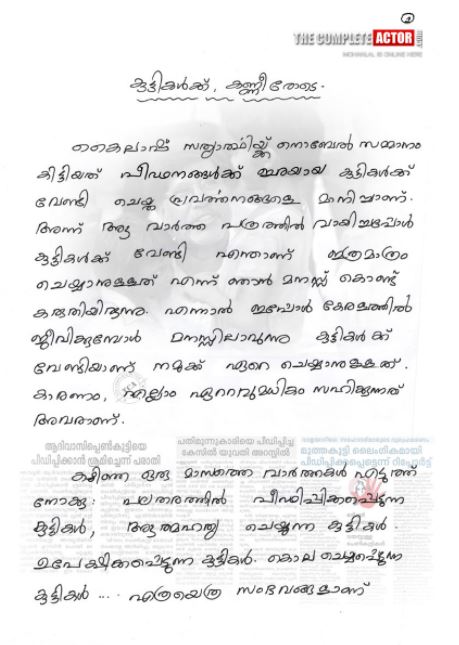 1
THE COMPLETE ACTOR .COM
MOHANLAL IS ONLINE HERE
കുട്ടികൾക്ക്, കണ്ണീരോടെ.
കൈലാഷ് സത്യാർത്ഥിയ്ക്ക് നൊബേൽ സമ്മാനം
കിട്ടിയത് പീഢനങ്ങൾക്ക് ഇരയായ കുട്ടികൾക്ക്
വേണ്ടി ചെയ്ത പ്രവർത്തനങ്ങളെ മാനിച്ചാണ്.
അന്ന് ആ വാർത്ത പത്രത്തിൽ വായിച്ചപ്പോൾ
കുട്ടികൾക്ക് വേണ്ടി എന്താണ് ഇത്രമാത്രം
ചെയ്യാനുള്ളത് എന്ന് ഞാൻ മനസ്സ് കൊണ്ട്
കരുതിയിരുന്നു. എന്നാൽ ഇപ്പോൾ കേരളത്തിൽ
ജീവിക്കുമ്പോൾ മനസ്സിലാവുന്നു കുട്ടികൾക്ക്
വേണ്ടിയാണ് നമുക്ക് ഏറെ ചെയ്യാനുള്ളത്.
കാരണം, എല്ലാം ഏറ്റവുമധികം സഹിക്കുന്നത്
അവരാണ്.
ആദിവാസിപെൺകുട്ടിയെ പീഡിപ്പിക്കാൻ ശ്രമിച്ചെന്ന് പരാതി
പതിമൂന്നുകാരിയെ പീഡിപ്പിച്ച കേസിൽ യുവതി അറസ്റ്റിൽ
മൂത്തകുട്ടി ലൈംഗികമായി പീഡിപ്പിക്കപ്പെട്ടെന്ന് റിപ്പോർട്ട്
കഴിഞ്ഞ ഒരു മാസത്തെ വാർത്തകൾ എടുത്ത്
നോക്കൂ: പലതരത്തിൽ പീഢിപ്പിക്കപ്പെടുന്ന
കുട്ടികൾ, ആത്മഹത്യ ചെയ്യുന്ന കുട്ടികൾ.
ഉപേക്ഷിക്കപ്പെടുന്ന കുട്ടികൾ. കൊല ചെയ്യപ്പെടുന്ന
കുട്ടികൾ .... എത്രയെത്ര സംഭവങ്ങളാണ്